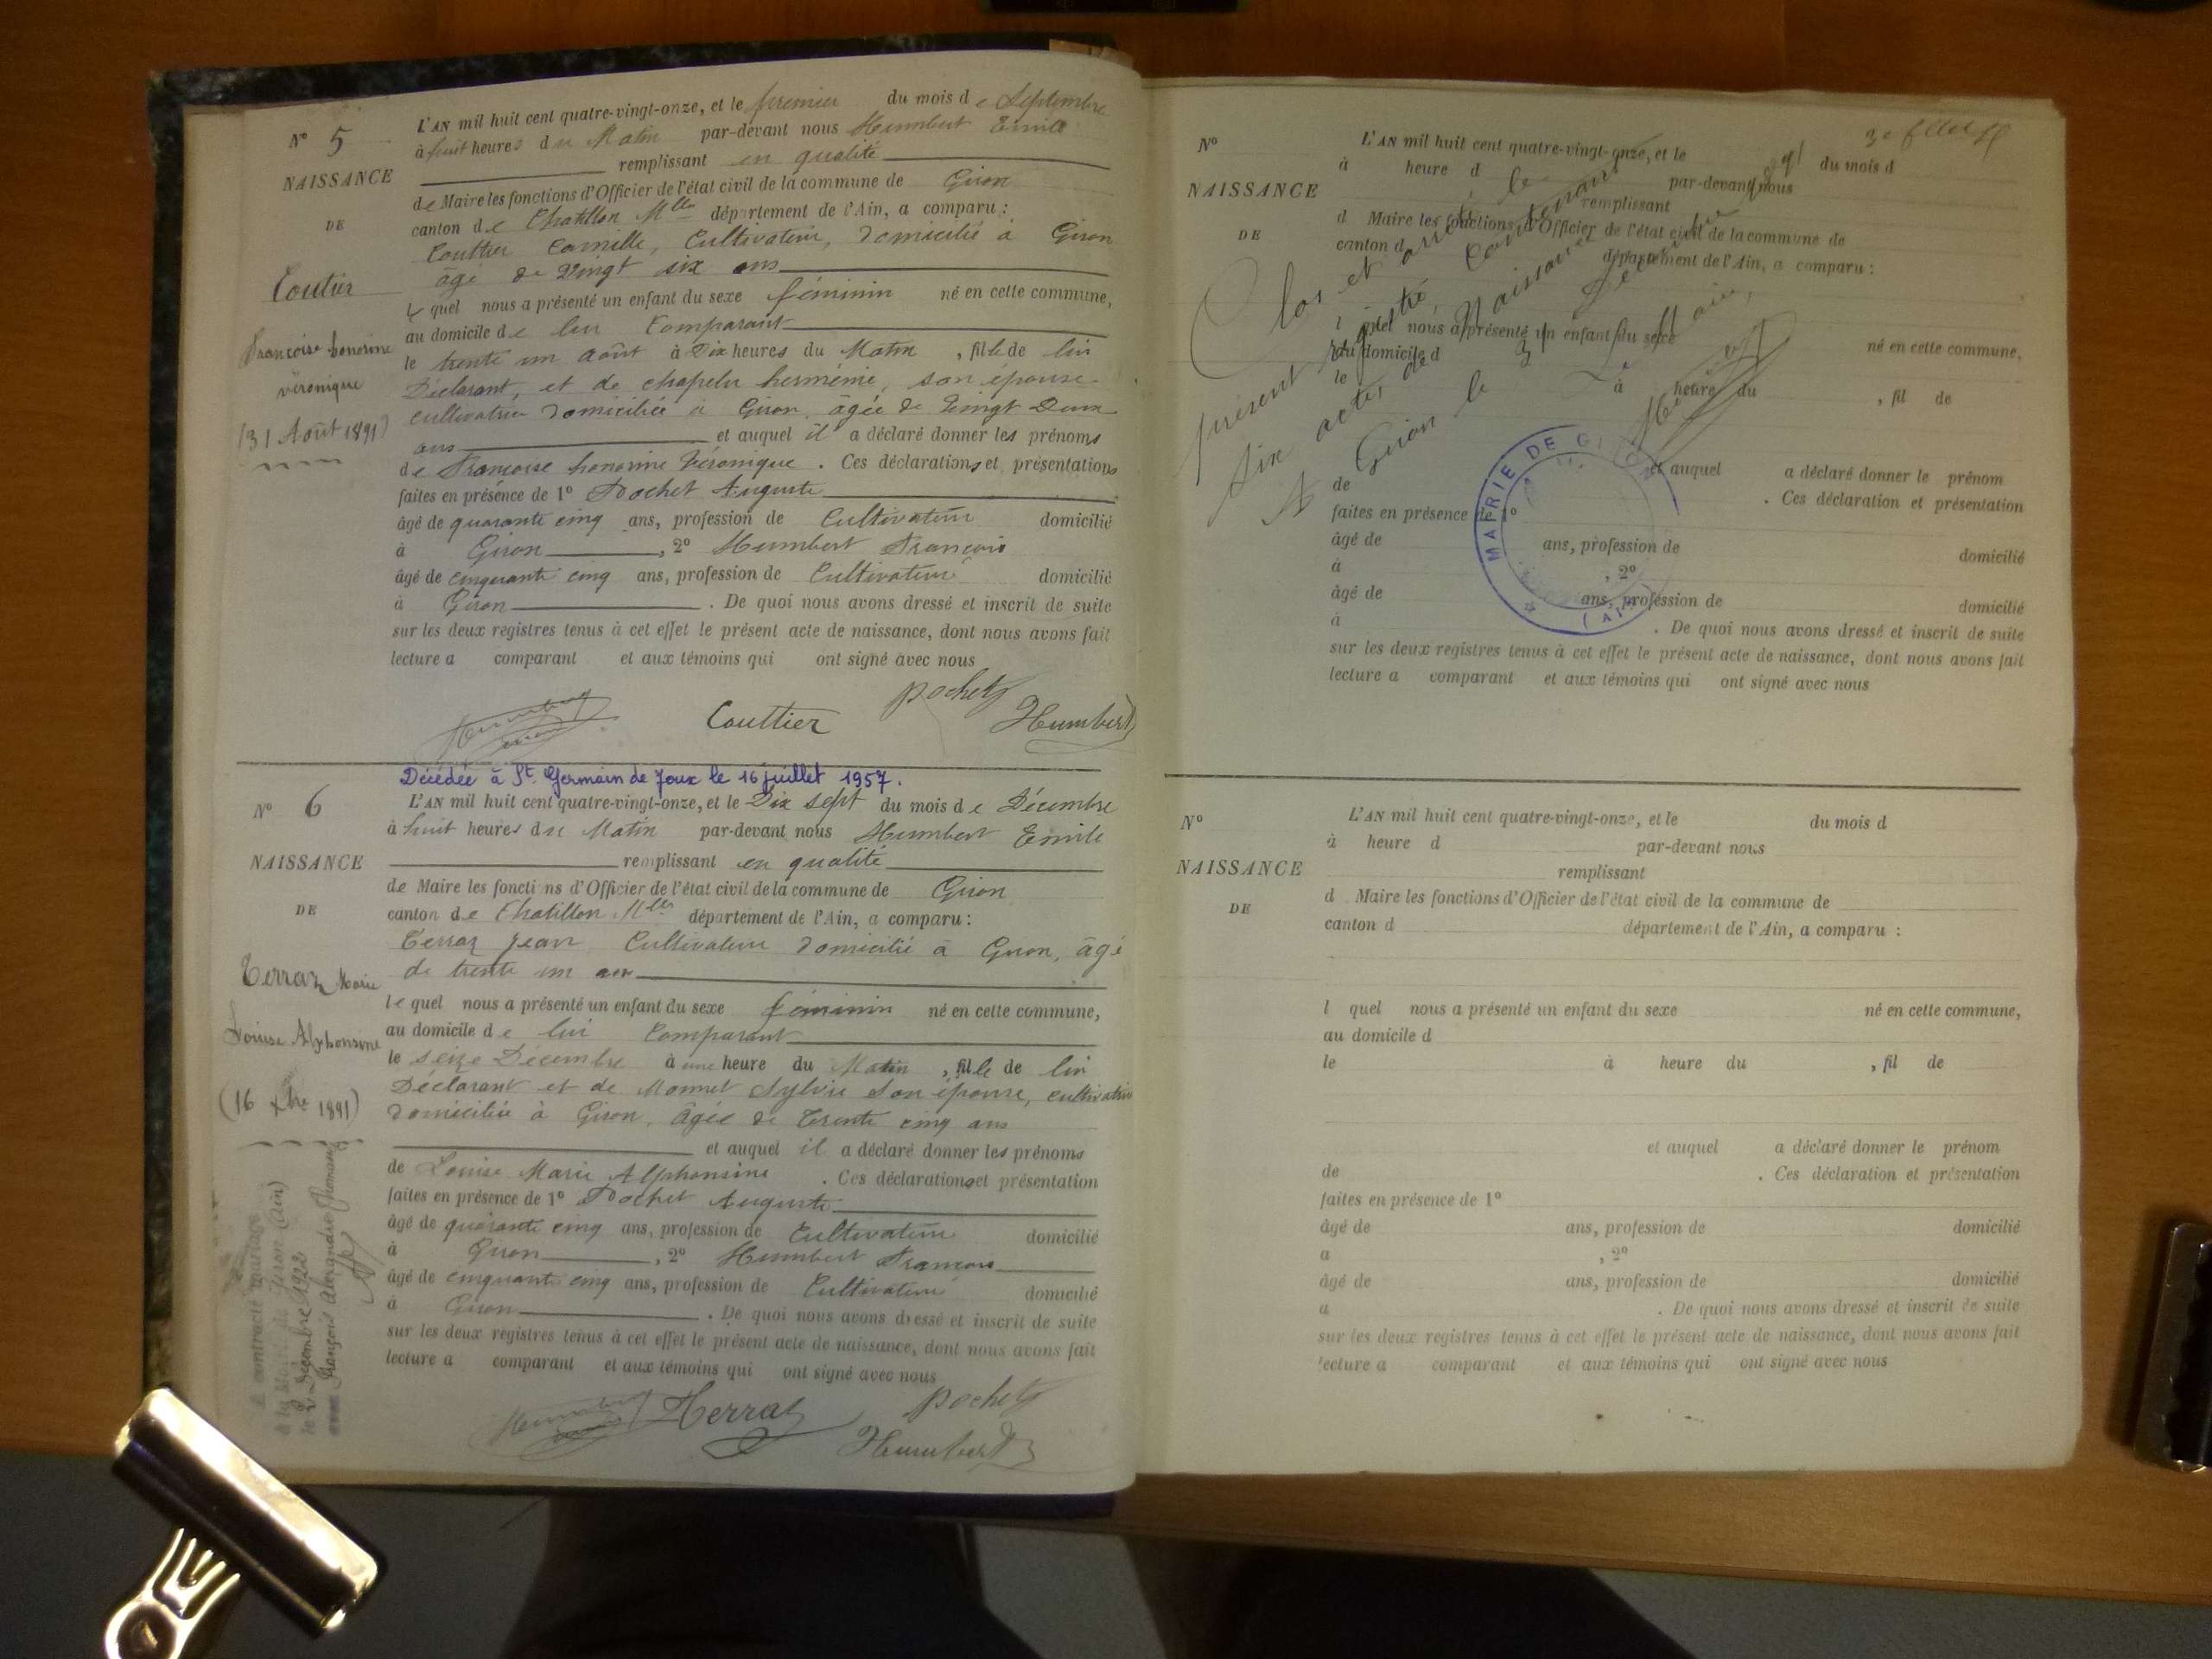 N° 5
NAISSANCE
DE
Coutier
Françoise honorine
véronique
(31 Août 1891)
L'AN mil huit cent quatre-vingt-onze, et le premier du mois de Septembre
à huit heures du Matin par-devant nous Humbert Emile
remplissant en qualité
de Maire les fonctions d'Officier de l'état civil de la commune de Giron
canton de Chatillon Mlle département de l'Ain, a comparu :
Couttier Camille, Cultivateur, domicilié à Giron
âgé de Vingt six ans
le quel nous a présenté un enfant du sexe féminin né en cette commune,
au domicile de lui Comparant
le trente un Août à Dix heures du Matin, fille de lui
Déclarant, et de chapelu herménie, son épouse
cultivatrice domiciliée à Giron, âgée de Vingt Deux
ans et auquel il a déclaré donner les prénoms
de Françoise honorine Véronique. Ces déclarations et présentations
faites en présence de 1° Pochet Auguste
âgé de quarante cinq ans, profession de Cultivateur domicilié
à Giron, 2° Humbert François
âgé de cinquante cinq ans, profession de Cultivateur domicilié
à Giron. De quoi nous avons dressé et inscrit de suite
sur les deux registres tenus à cet effet le présent acte de naissance, dont nous avons fait
lecture a comparant et aux témoins qui ont signé avec nous
Humbert Couttier Pochet Humbert
Décédée à St Germain de Joux le 16 juillet 1957.
N° 6
NAISSANCE
DE
Terraz Marie
Louise Alphonsine
(16 Xbre 1891)
A contracté mariage
à la Mairie de Giron (Ain)
le 2 Décembre 1922
avec François Alexandre Romand
L'AN mil huit cent quatre-vingt-onze, et le Dix sept du mois de Décembre
à huit heures du Matin par-devant nous Humbert Emile
remplissant en qualité
de Maire les fonctions d'Officier de l'état civil de la commune de Giron
canton de Chatillon Mlle département de l'Ain, a comparu :
Terraz Jean Cultivateur domicilié à Giron, âgé
de trente un ans
le quel nous a présenté un enfant du sexe féminin né en cette commune,
au domicile de lui Comparant
le seize Décembre à une heure du Matin, fille de lui
Déclarant et de Monnet Sylvie son épouse, cultivatrice
domiciliée à Giron, âgée de Trente cinq ans
et auquel il a déclaré donner les prénoms
de Louise Marie Alphonsine. Ces déclarations et présentation
faites en présence de 1° Pochet Auguste
âgé de quarante cinq ans, profession de Cultivateur domicilié
à Giron, 2° Humbert François
âgé de cinquante cinq ans, profession de Cultivateur domicilié
à Giron. De quoi nous avons dressé et inscrit de suite
sur les deux registres tenus à cet effet le présent acte de naissance, dont nous avons fait
lecture a comparant et aux témoins qui ont signé avec nous
Humbert Terraz Pochet
Humbert
N°
NAISSANCE
DE
L'AN mil huit cent quatre-vingt-onze, et le du mois d
à heure d par-devant nous
remplissant
d Maire les fonctions d'Officier de l'état civil de la commune de
canton d département de l'Ain, a comparu :
l quel nous a présenté un enfant du sexe né en cette commune,
au domicile d
le à heure du , fil de
et auquel a déclaré donner le prénom
de . Ces déclaration et présentation
faites en présence de 1°
âgé de ans, profession de domicilié
à , 2°
âgé de ans, profession de domicilié
à . De quoi nous avons dressé et inscrit de suite
sur les deux registres tenus à cet effet le présent acte de naissance, dont nous avons fait
lecture a comparant et aux témoins qui ont signé avec nous
Clos et arrêté le
présent registre, contenant
Six actes de Naissance
A Giron le 31 Décembre 1891
Le Maire,
MAIRIE DE GIRON
(AIN)
N°
NAISSANCE
DE
L'AN mil huit cent quatre-vingt-onze, et le du mois d
à heure d par-devant nous
remplissant
d Maire les fonctions d'Officier de l'état civil de la commune de
canton d département de l'Ain, a comparu :
l quel nous a présenté un enfant du sexe né en cette commune,
au domicile d
le à heure du , fil de
et auquel a déclaré donner le prénom
de . Ces déclaration et présentation
faites en présence de 1°
âgé de ans, profession de domicilié
a , 2°
âgé de ans, profession de domicilié
a . De quoi nous avons dressé et inscrit de suite
sur les deux registres tenus à cet effet le présent acte de naissance, dont nous avons fait
lecture a comparant et aux témoins qui ont signé avec nous